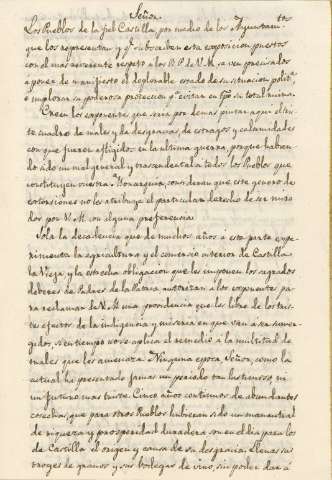 Señor
Los Pueblos de la fiel Castilla, por medio de los Ayuntam.tos
que los representan y q.e subscriben esta exposicion puestos
con el mas reverente respeto a los R.P. de V.M. se ven precisados
a poner de manifiesto el deplorable estado de su situacion polit.a
é implorar su poderosa proteccion q.e evitan en su total ruina.
Creen los exponentes que seria por demas pintar aqui el tris-
te cuadro de males y de desgracias, de estragos y calamidades
con que fueron afligidos en la ultima guerra, porque habien-
do sido un mal general y trascendental a todos los Pueblos que
constituyen vuestra Monarquia, consideran que este genero de
extorsiones no les atribuye el particular derecho de ser mira-
dos por V.M. con alguna preferencia.
Sola la decadencia que de muchos años á esta parte expe-
rimenta la agricultura y el comercio interior de Castilla
la Vieja y la estrecha obligacion que les imponen los sagrados
deberes de Padres de la Patria autorizan a los exponentes pa-
ra reclamar de V.M. una providencia que les libre de los tris-
tes efectos de la indigencia y miseria en que van a ser sumer-
gidos, si en tiempo no se aplica el remedio a la multitud de
males que les amenaza. Ninguna epoca, Señor, como la
actual ha presentado jamas un periodo tan lastimoso, ni
un futuro mas triste. Cinco años continuos de abundantes
cosechas, que para otros Pueblos hubieran sido un manantial
de riqueza y prosperidad duradera son en el dia para los
de Castilla el origen y causa de su desgracia. Llenas sus
troges de granos y sus bodegas de vino, sin poder dar á